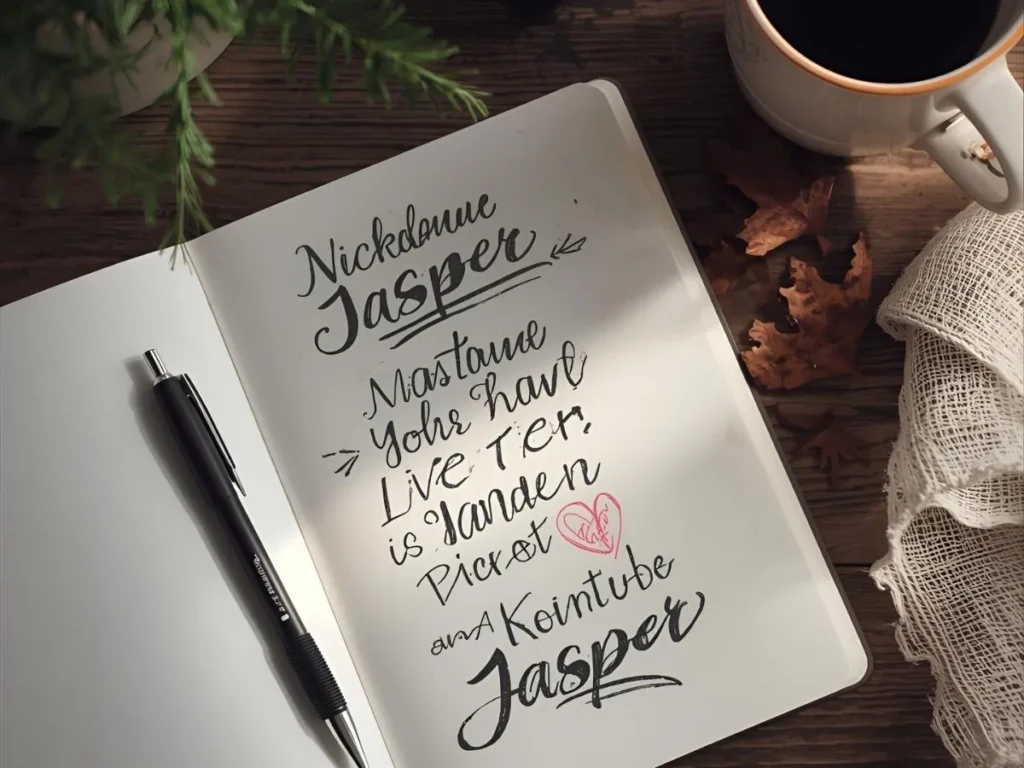 Nickdonue
Jasper
Mastaue
yohr havl
Live Ter.
is Janden
Picrot
and Kointube
Jasper